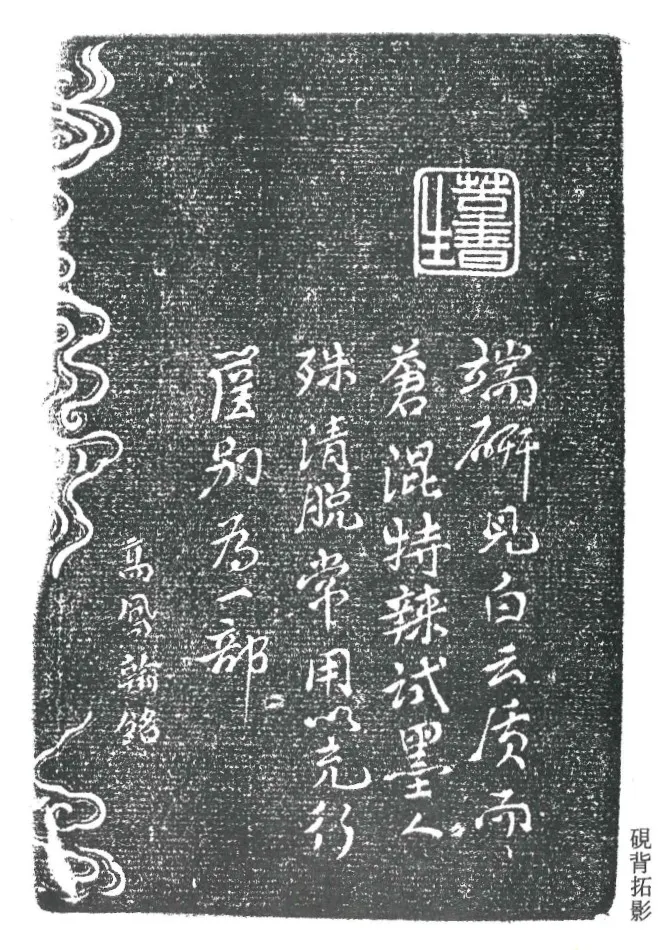 端研見白云质而
蒼混特辣试墨人々
殊清脱常用以充行
箧别为一部
高鳳翰銘
硯背拓影